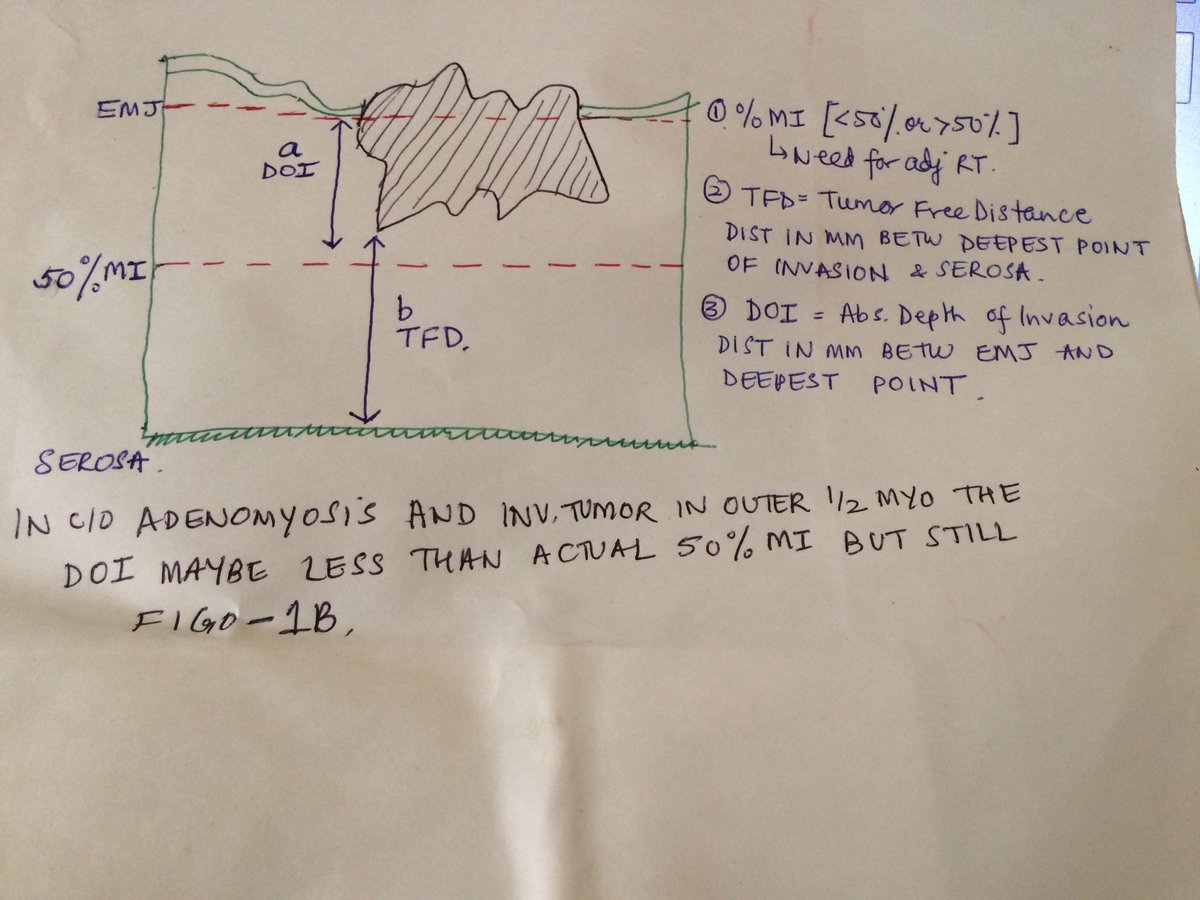 EMJ
a
DOI
50% MI
b
TFD.
SEROSA.
① % MI [<50% or >50%]
↳ Need for adj RT.
② TFD = Tumor Free Distance
DIST IN MM BETW DEEPEST POINT
OF INVASION & SEROSA.
③ DOI = Abs. Depth of Invasion
DIST IN MM BETW EMJ AND
DEEPEST POINT.
IN C/O ADENOMYOSIS AND INV. TUMOR IN OUTER 1/2 MYO THE
DOI MAYBE LESS THAN ACTUAL 50% MI BUT STILL
FIGO-1B.